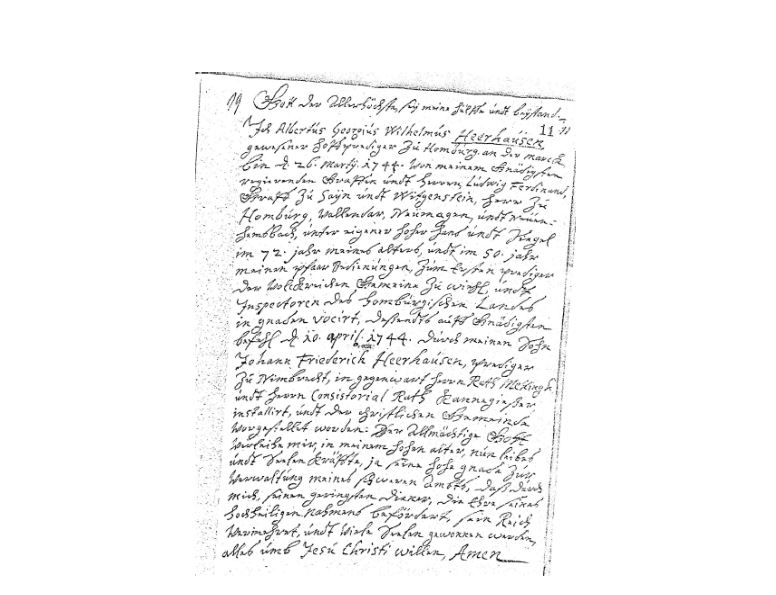 19 Gott der Allerhöchste, sey meine Hülffe undt beystand.
11
Ich Albertus Georgius Wilhelmus Heerhausen
gewesener Hoffprediger zu Homburg an der marck
bin d 26. Martÿ 1744. von meinem Gnädigsten
regierenden Graffen undt Herren, Ludwig Ferdinand,
Graff zu Saÿn undt Witgenstein, Herr zu
Homburg, Vallendar, Neumagen, undt
unter eigener hoher Hand undt Siegel
im 72. jahr meines alters, undt im 50. jahr
meinen pfarr bedienungen, zum Ersten prediger
der Volckreichen Gemeine zu wiehl, undt
Inspectoren des homburgischen Landes
in gnaden vocirt, auff Gnädigsten
befehl d 10. april. 1744. durch meinen Sohn
Johann Friederich Heerhausen, prediger
zu Nümbrecht, in gegenwart Herrn Rath
undt Herrn Consistorial Rath Kannegießer
installirt, undt der christlichen Gemeinde
vorgestellet worden: Der Allmächtige Gott
verleihe mir, in meinem hohen alter, nun leibes
undt Seelen Kräffte, ja seine hohe gnade zur
Verwaltung meines schweren ambts, daß durch
mich, seinen geringsten diener, die Ehre seines
hochheiligen nahmens befördert, sein Reich
vermehret, undt viele Seelen gewonnen werden,
alles umb Jesu Christi willen, Amen